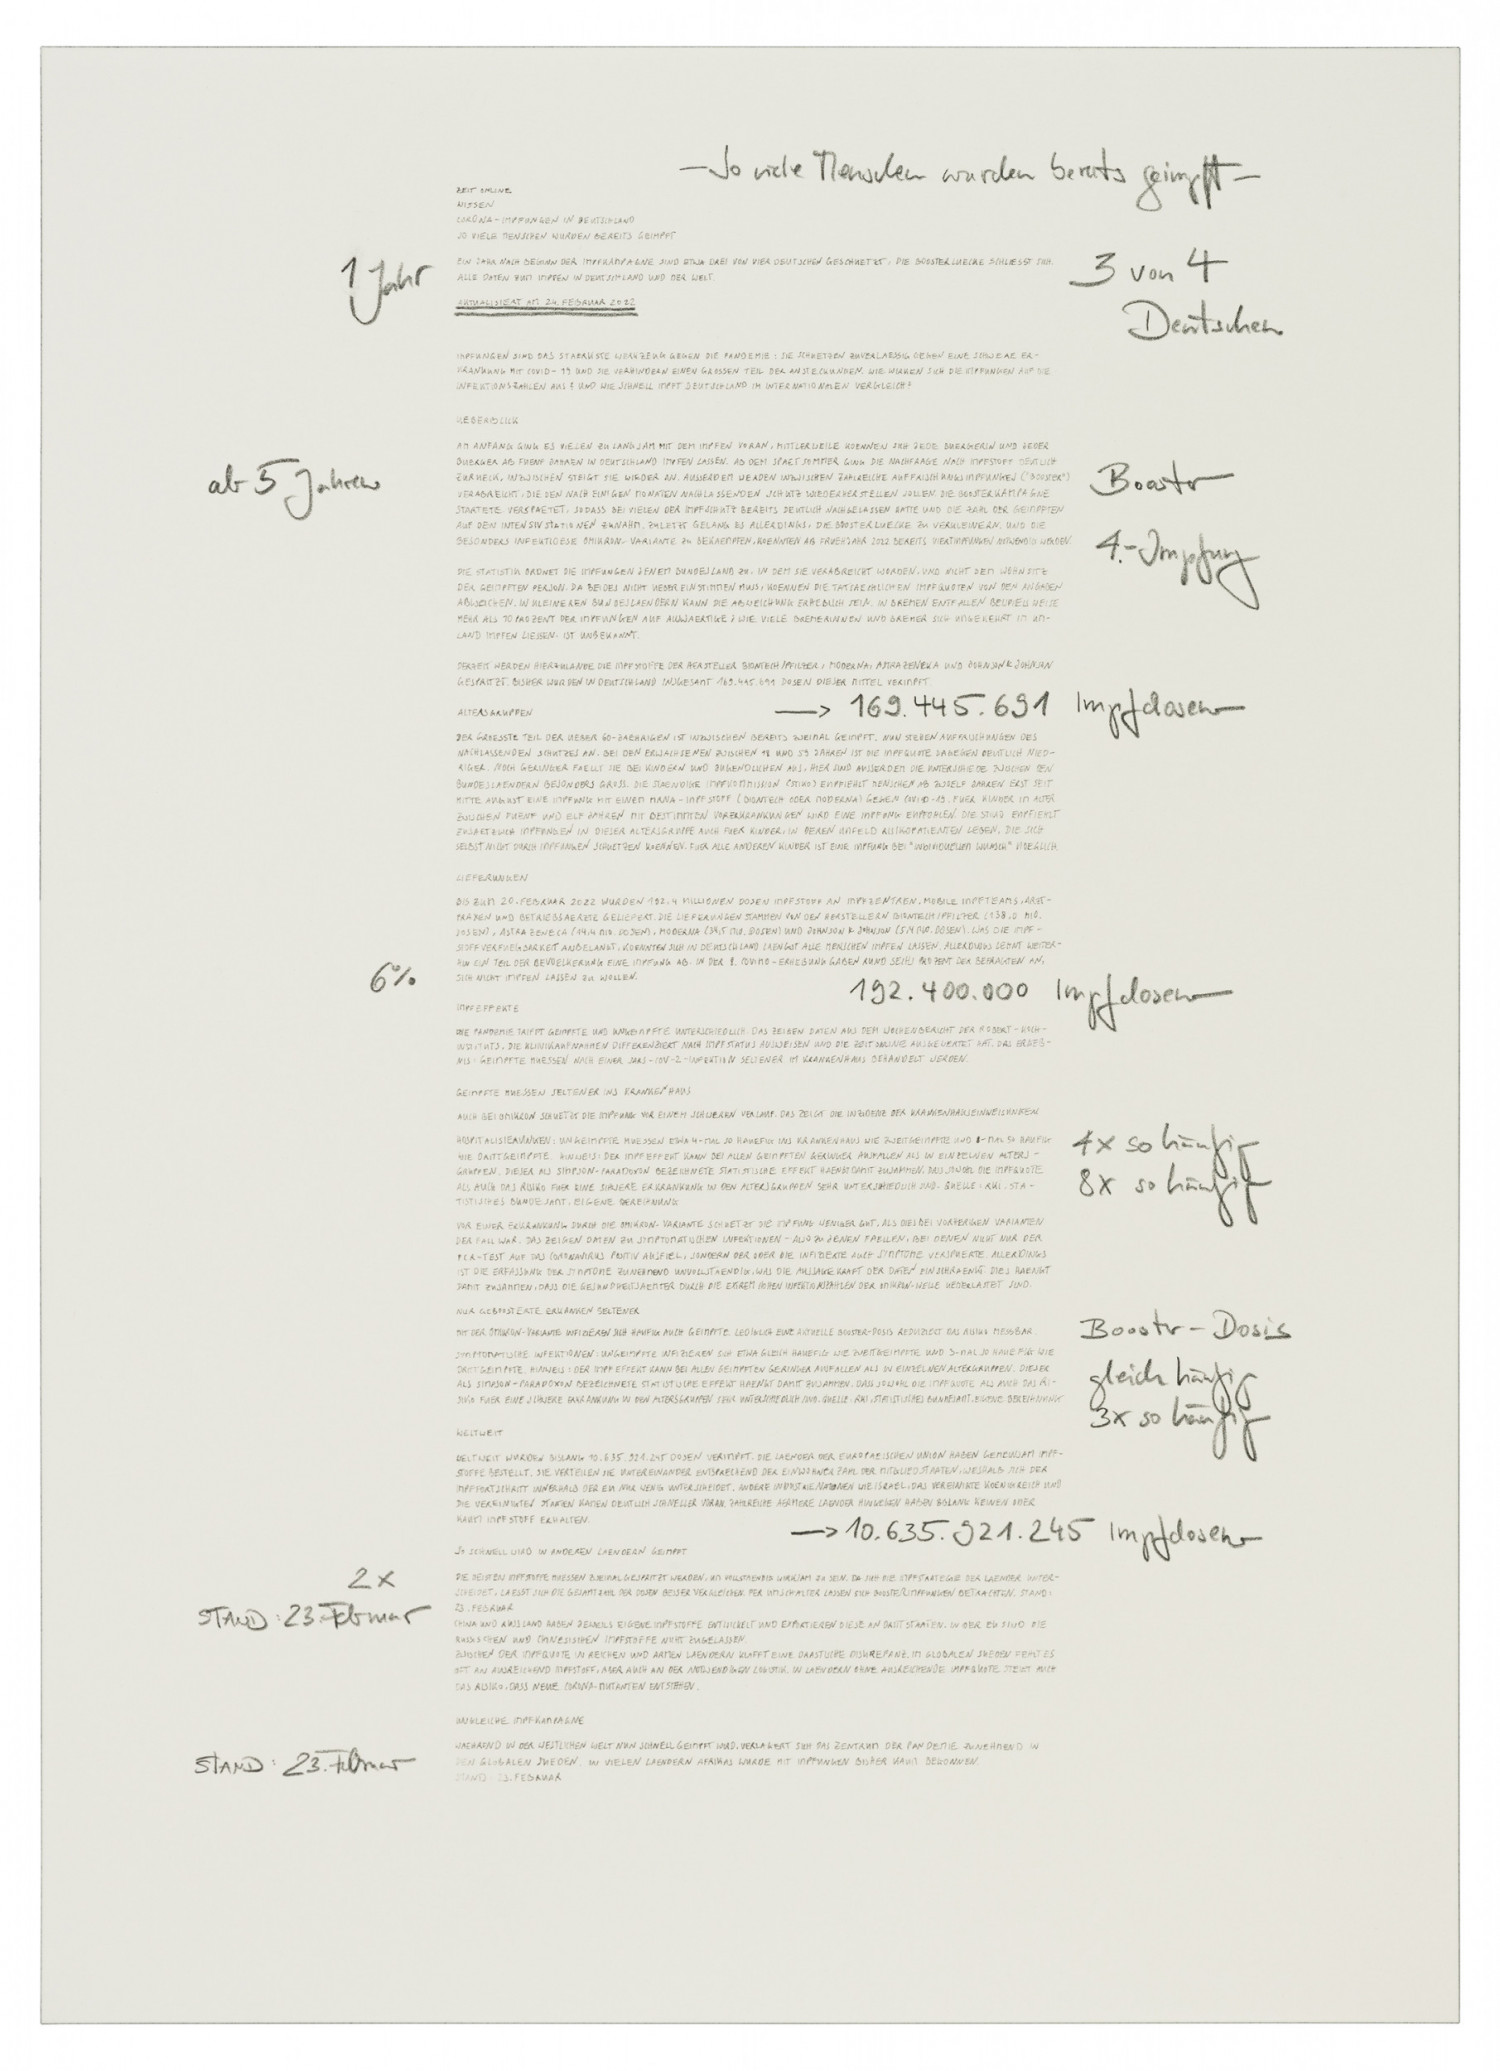 – So viele Menschen wurden bereits geimpft –
ZEIT ONLINE
WISSEN
CORONA-IMPFUNGEN IN DEUTSCHLAND
SO VIELE MENSCHEN WURDEN BEREITS GEIMPFT
1 Jahr
EIN JAHR NACH BEGINN DER IMPFKAMPAGNE SIND ETWA DREI VON VIER DEUTSCHEN GESCHUETZT. DIE BOOSTERLUECKE SCHLIESST SICH.
ALLE DATEN ZUM IMPFEN IN DEUTSCHLAND UND DER WELT.
3 von 4
Deutschen
AKTUALISIERT AM 24. FEBRUAR 2022
IMPFUNGEN SIND DAS STAERKSTE WERKZEUG GEGEN DIE PANDEMIE: SIE SCHUETZEN ZUVERLAESSIG GEGEN EINE SCHWERE ER-
KRANKUNG MIT COVID-19 UND SIE VERHINDERN EINEN GROSSEN TEIL DER ANSTECKUNGEN. WIE WIRKEN SICH DIE IMPFUNGEN AUF DIE
INFEKTIONSZAHLEN AUS? UND WIE SCHNELL IMPFT DEUTSCHLAND IM INTERNATIONALEN VERGLEICH?
UEBERBLICK
AM ANFANG GING ES VIELEN ZU LANGSAM MIT DEM IMPFEN VORAN, MITTLERWEILE KOENNEN SICH JEDE BUERGERIN UND JEDER
BUERGER AB FUENF JAHREN IN DEUTSCHLAND IMPFEN LASSEN. AB DEM SPAETSOMMER GING DIE NACHFRAGE NACH IMPFSTOFF DEUTLICH
ZURUECK, INZWISCHEN STEIGT SIE WIEDER AN. AUSSERDEM WERDEN INZWISCHEN ZAHLREICHE AUFFRISCHUNGSIMPFUNGEN ("BOOSTER")
VERABREICHT, DIE DEN NACH EINIGEN MONATEN NACHLASSENDEN SCHUTZ WIEDERHERSTELLEN SOLLEN. DIE BOOSTERKAMPAGNE
STARTETE VERSPAETET, SODASS BEI VIELEN DER IMPFSCHUTZ BEREITS DEUTLICH NACHGELASSEN HATTE UND DIE ZAHL DER GEIMPFTEN
AUF DEN INTENSIVSTATIONEN ZUNAHM. ZULETZT GELANG ES ALLERDINGS, DIE BOOSTERLUECKE ZU VERKLEINERN. UND DIE
BESONDERS INFEKTIOESE OMIKRON-VARIANTE ZU BEKAEMPFEN, KOENNTEN AB FRUEHJAHR 2022 BEREITS VIERTIMPFUNGEN NOTWENDIG WERDEN.
ab 5 Jahren
Booster
4.-Impfung
DIE STATISTIK ORDNET DIE IMPFUNGEN JENEM BUNDESLAND ZU, IN DEM SIE VERABREICHT WORDEN, UND NICHT DEM WOHNSITZ
DER GEIMPFTEN PERSON. DA BEIDES NICHT UEBEREINSTIMMEN MUSS, KOENNEN DIE TATSAECHLICHEN IMPFQUOTEN VON DEN ANGABEN
ABWEICHEN. IN KLEINEREN BUNDESLAENDERN KANN DIE ABWEICHUNG ERHEBLICH SEIN. IN BREMEN ENTFALLEN BEISPIELSWEISE
MEHR ALS 10 PROZENT DER IMPFUNGEN AUF AUSWAERTIGE; WIE VIELE BREMERINNEN UND BREMER SICH UMGEKEHRT IM UM-
LAND IMPFEN LIESSEN, IST UNBEKANNT.
DERZEIT WERDEN HIERZULANDE DIE IMPFSTOFFE DER HERSTELLER BIONTECH/PFIZER, MODERNA, ASTRAZENEKA UND JOHNSON & JOHNSON
GESPRITZT. BISHER WURDEN IN DEUTSCHLAND INSGESAMT 169.445.691 DOSEN DIESER MITTEL VERIMPFT.
→ 169.445.691 Impfdosen
ALTERSGRUPPEN
DER GROESSTE TEIL DER UEBER 60-JAEHRIGEN IST INZWISCHEN BEREITS ZWEIMAL GEIMPFT. NUN STEHEN AUFFRISCHUNGEN DES
NACHLASSENDEN SCHUTZES AN. BEI DEN ERWACHSENEN ZWISCHEN 18 UND 59 JAHREN IST DIE IMPFQUOTE DAGEGEN DEUTLICH NIED-
RIGER. NOCH GERINGER FAELLT SIE BEI KINDERN UND JUGENDLICHEN AUS, HIER SIND AUSSERDEM DIE UNTERSCHIEDE ZWISCHEN DEN
BUNDESLAENDERN BESONDERS GROSS. DIE STAENDIGE IMPFKOMMISSION (STIKO) EMPFIEHLT MENSCHEN AB ZWOELF JAHREN ERST SEIT
MITTE AUGUST EINE IMPFUNG MIT EINEM MRNA-IMPFSTOFF (BIONTECH ODER MODERNA) GEGEN COVID-19. FUER KINDER IM ALTER
ZWISCHEN FUENF UND ELF JAHREN MIT BESTIMMTEN VORERKRANKUNGEN WIRD EINE IMPFUNG EMPFOHLEN. DIE STIKO EMPFIEHLT
ZUSAETZLICH IMPFUNGEN IN DIESER ALTERSGRUPPE AUCH FUER KINDER, IN DEREN UMFELD RISIKOPATIENTEN LEBEN, DIE SICH
SELBST NICHT DURCH IMPFUNGEN SCHUETZEN KOENNEN. FUER ALLE ANDEREN KINDER IST EINE IMPFUNG BEI "INDIVIDUELLEM WUNSCH" MOEGLICH.
LIEFERUNGEN
BIS ZUM 20. FEBRUAR 2022 WURDEN 192,4 MILLIONEN DOSEN IMPFSTOFF AN IMPFZENTREN, MOBILE IMPFTEAMS, ARZT-
PRAXEN UND BETRIEBSAERZTE GELIEFERT. DIE LIEFERUNGEN STAMMEN VON DEN HERSTELLERN BIONTECH/PFIZER (138,0 MIO.
DOSEN), ASTRA ZENECA (14,4 MIO. DOSEN), MODERNA (34,5 MIO. DOSEN) UND JOHNSON & JOHNSON (5,4 MIO. DOSEN). WAS DIE IMPF-
STOFFVERFUEGBARKEIT ANBELANGT, KOENNTEN SICH IN DEUTSCHLAND LAENGST ALLE MENSCHEN IMPFEN LASSEN. ALLERDINGS LEHNT WEITER-
HIN EIN TEIL DER BEVOELKERUNG EINE IMPFUNG AB. IN DER 9. COVIMO-ERHEBUNG GABEN RUND SECHS PROZENT DER BEFRAGTEN AN,
SICH NICHT IMPFEN LASSEN ZU WOLLEN.
6%
192.400.000 Impfdosen
IMPFEFFEKTE
DIE PANDEMIE TRIFFT GEIMPFTE UND UNGEIMPFTE UNTERSCHIEDLICH. DAS ZEIGEN DATEN AUS DEM WOCHENBERICHT DER ROBERT-KOCH-
INSTITUTS, DIE KLINIKAUFNAHMEN DIFFERENZIERT NACH IMPFSTATUS AUSWEISEN UND DIE ZEIT ONLINE AUSGEWERTET HAT. DAS ERGEB-
NIS: GEIMPFTE MUESSEN NACH EINER SARS-COV-2-INFEKTION SELTENER IM KRANKENHAUS BEHANDELT WERDEN.
GEIMPFTE MUESSEN SELTENER INS KRANKENHAUS
AUCH BEI OMIKRON SCHUETZT DIE IMPFUNG VOR EINEM SCHWEREN VERLAUF. DAS ZEIGT DIE INZIDENZ DER KRANKENHAUSEINWEISUNGEN
HOSPITALISIERUNGEN: UNGEIMPFTE MUESSEN ETWA 4-MAL SO HAEUFIG INS KRANKENHAUS WIE ZWEITGEIMPFTE UND 8-MAL SO HAEUFIG
WIE DRITTGEIMPFTE. HINWEIS: DER IMPFEFFEKT KANN BEI ALLEN GEIMPFTEN GERINGER AUSFALLEN ALS IN EINZELNEN ALTERS-
GRUPPEN. DIESER ALS SIMPSON-PARADOXON BEZEICHNETE STATISTISCHE EFFEKT HAENGT DAMIT ZUSAMMEN, DASS SOWOHL DIE IMPFQUOTE
ALS AUCH DAS RISIKO FUER EINE SCHWERE ERKRANKUNG IN DEN ALTERSGRUPPEN SEHR UNTERSCHIEDLICH SIND. QUELLE: RKI, STA-
TISTISCHES BUNDESAMT, EIGENE BERECHNUNG
4x so häufig
8x so häufig
VOR EINER ERKRANKUNG DURCH DIE OMIKRON-VARIANTE SCHUETZT DIE IMPFUNG WENIGER GUT, ALS DIES BEI VORHERIGEN VARIANTEN
DER FALL WAR. DAS ZEIGEN DATEN ZU SYMPTOMATISCHEN INFEKTIONEN – ALSO ZU JENEN FAELLEN, BEI DENEN NICHT NUR DER
PCR-TEST AUF DAS CORONAVIRUS POSITIV AUSFIEL, SONDERN DER ODER DIE INFIZIERTE AUCH SYMPTOME VERSPUERTE. ALLERDINGS
IST DIE ERFASSUNG DER SYMPTOME ZUNEHMEND UNVOLLSTAENDIG, WAS DIE AUSSAGEKRAFT DER DATEN EINSCHRAENKT. DIES HAENGT
DAMIT ZUSAMMEN, DASS DIE GESUNDHEITSAEMTER DURCH DIE EXTREM HOHEN INFEKTIONSZAHLEN DER OMIKRON-WELLE UEBERLASTET SIND.
NUR GEBOOSTERTE ERKRANKEN SELTENER
MIT DER OMIKRON-VARIANTE INFIZIEREN SICH HAEUFIG AUCH GEIMPFTE. LEDIGLICH EINE AKTUELLE BOOSTER-DOSIS REDUZIERT DAS RISIKO MESSBAR.
Booster-Dosis
SYMPTOMATISCHE INFEKTIONEN: UNGEIMPFTE INFIZIEREN SICH ETWA GLEICH HAEUFIG WIE ZWEITGEIMPFTE UND 3-MAL SO HAEUFIG WIE
DRITTGEIMPFTE. HINWEIS: DER IMPFEFFEKT KANN BEI ALLEN GEIMPFTEN GERINGER AUSFALLEN ALS IN EINZELNEN ALTERGRUPPEN. DIESER
ALS SIMPSON-PARADOXON BEZEICHNETE STATISTISCHE EFFEKT HAENGT DAMIT ZUSAMMEN, DASS SOWOHL DIE IMPFQUOTE ALS AUCH DAS RI-
SIKO FUER EINE SCHWERE ERKRANKUNG IN DEN ALTERSGRUPPEN SEHR UNTERSCHIEDLICH SIND. QUELLE: RKI, STATISTISCHES BUNDESAMT, EIGENE BERECHNUNG
gleich häufig
3x so häufig
WELTWEIT
WELTWEIT WURDEN BISLANG 10.635.921.245 DOSEN VERIMPFT. DIE LAENDER DER EUROPAEISCHEN UNION HABEN GEMEINSAM IMPF-
STOFFE BESTELLT. SIE VERTEILEN SIE UNTEREINANDER ENTSPRECHEND DER EINWOHNERZAHL DER MITGLIEDSTAATEN, WESHALB SICH DER
IMPFFORTSCHRITT INNERHALB DER EU NUR WENIG UNTERSCHEIDET. ANDERE INDUSTRIENATIONEN WIE ISRAEL, DAS VEREINIGTE KOENIGREICH UND
DIE VEREINIGTEN STAATEN KAMEN DEUTLICH SCHNELLER VORAN. ZAHLREICHE AERMERE LAENDER HINGEGEN HABEN BISLANG KEINEN ODER
KAUM IMPFSTOFF ERHALTEN.
→ 10.635.921.245 Impfdosen
SO SCHNELL WIRD IN ANDEREN LAENDERN GEIMPFT
2x
DIE MEISTEN IMPFSTOFFE MUESSEN ZWEIMAL GESPRITZT WERDEN, UM VOLLSTAENDIG WIRKSAM ZU SEIN. DA SICH DIE IMPFSTRATEGIE DER LAENDER UNTER-
SCHEIDET, LAESST SICH DIE GESAMTZAHL DER DOSEN BESSER VERGLEICHEN. PER UMSCHALTER LASSEN SICH BOOSTERIMPFUNGEN BETRACHTEN. STAND:
23. FEBRUAR
STAND: 23. Februar
CHINA UND RUSSLAND HABEN JEWEILS EIGENE IMPFSTOFFE ENTWICKELT UND EXPORTIEREN DIESE AN DRITTSTAATEN. IN DER EU SIND DIE
RUSSISCHEN UND CHINESISCHEN IMPFSTOFFE NICHT ZUGELASSEN.
ZWISCHEN DER IMPFQUOTE IN REICHEN UND ARMEN LAENDERN KLAFFT EINE DRASTISCHE DISKREPANZ. IM GLOBALEN SUEDEN FEHLT ES
OFT AN AUSREICHEND IMPFSTOFF, ABER AUCH AN DER NOTWENDIGEN LOGISTIK. IN LAENDERN OHNE AUSREICHENDE IMPFQUOTE STEIGT AUCH
DAS RISIKO, DASS NEUE CORONA-MUTANTEN ENTSTEHEN.
UNGLEICHE IMPFKAMPAGNE
WAEHREND IN DER WESTLICHEN WELT NUN SCHNELL GEIMPFT WIRD, VERLAGERT SICH DAS ZENTRUM DER PANDEMIE ZUNEHMEND IN
DEN GLOBALEN SUEDEN. IN VIELEN LAENDERN AFRIKAS WURDE MIT IMPFUNGEN BISHER KAUM BEGONNEN.
STAND: 23. FEBRUAR
STAND: 23. Februar